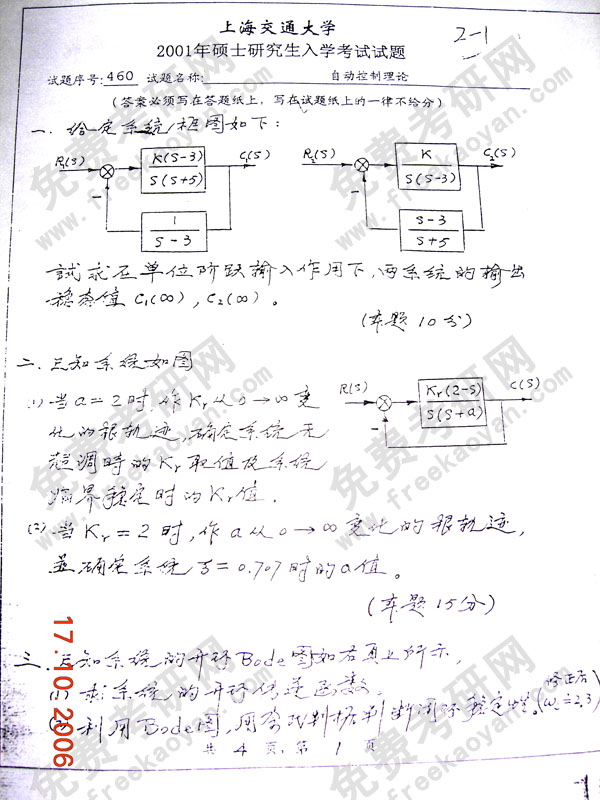 上海交通大学
2-1
2001年硕士研究生入学考试试题
试题序号: 460 试题名称: 自动控制理论
(答案必须写在答题纸上，写在试题纸上的一律不给分)
一、给定系统框图如下:
R₁(S) K(S-3) C₁(S)
S(S+5)
-
1
S-3
R₂(S) K C₂(S)
S(S-3)
-
S-3
S+5
試求在单位阶跃输入作用下，两系统的输出
稳态值 C₁(∞), C₂(∞)。
(本题10分)
二、已知系统如图
(1) 当a=2时,作Kr从0→∞变
化的根轨迹,确定系统无
超调時的Kr取值及系统
临界稳定时的Kr值.
R(S) Kr(2-S) C(S)
S(S+a)
-
(2) 当Kr=2时,作a从0→∞变化的根轨迹,
並确定系统ζ=0.707时的a值。
(本题15分)
三、已知系统的开环Bode图如右頁上所示,
(1) 求系统的开环传递函数.
(2) 利用Bode图,用奈氏判据判断闭环稳定性。(修正后 ωc=2.3)
共 4 页, 第 1 页
17.10.2006
-1
免费考研网
www.freekaoyan.com